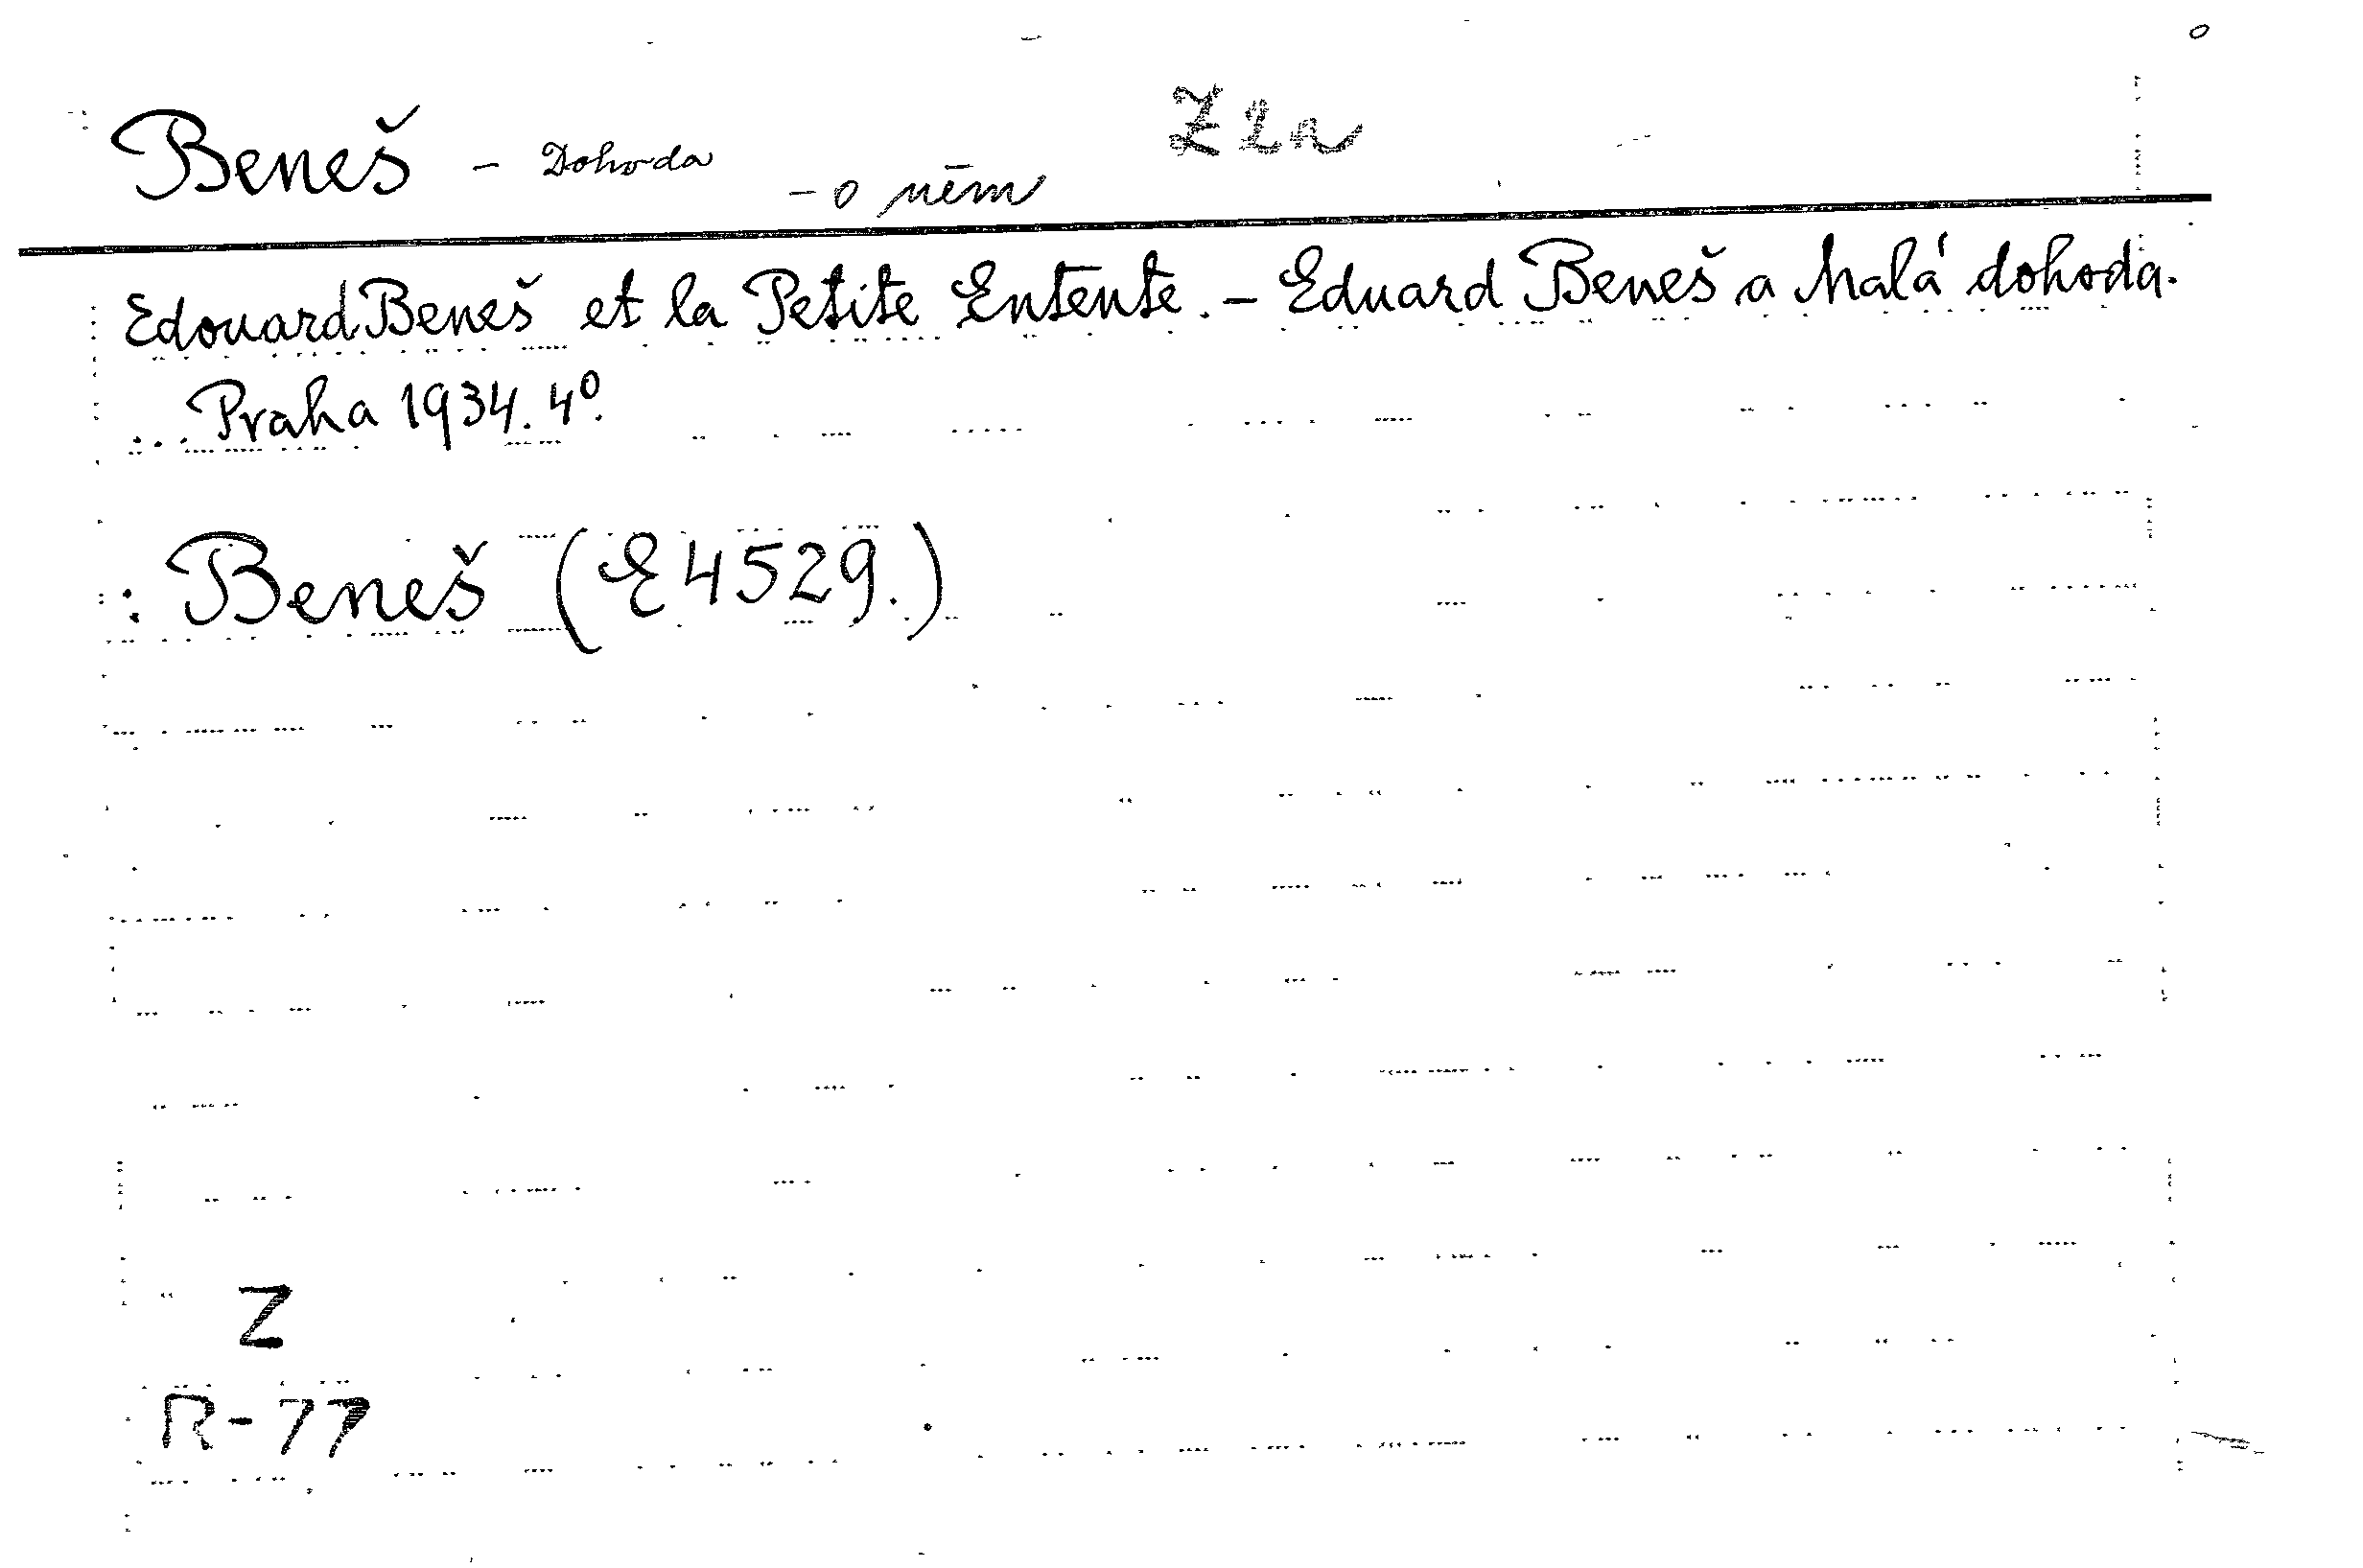 Beneš - Dohoda - o něm Z 2a
Edouard Beneš et la Petite Entente. - Eduard Beneš a Malá dohoda.
Praha 1934. 4°.
: Beneš (E 4529.)
Z
R-77